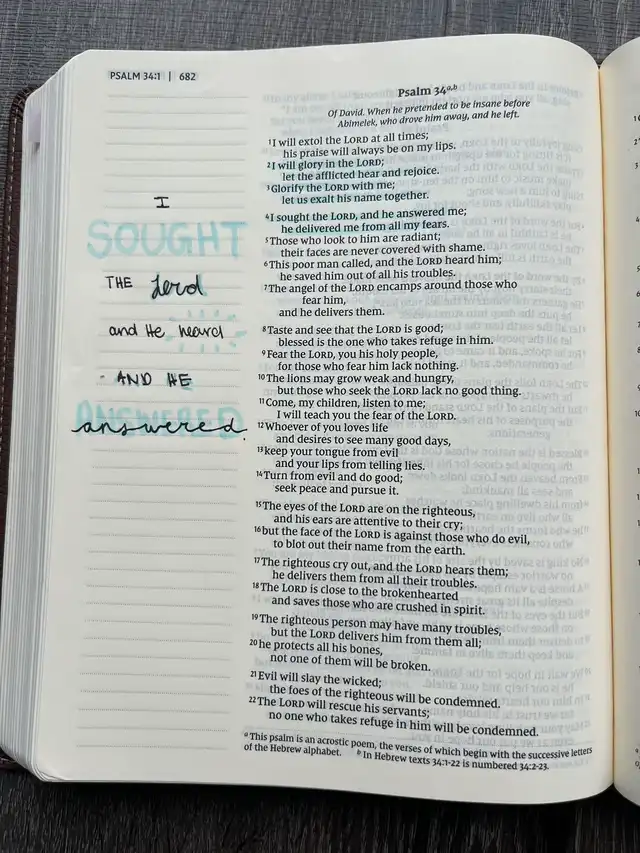 PSALM 34:1 | 682
I
SOUGHT
THE Lord
and He heard
- AND HE
ANSWERED
answered.
Psalm 34a,b
Of David. When he pretended to be insane before
Abimelek, who drove him away, and he left.
1I will extol the LORD at all times;
his praise will always be on my lips.
2I will glory in the LORD;
let the afflicted hear and rejoice.
3Glorify the LORD with me;
let us exalt his name together.
4I sought the LORD, and he answered me;
he delivered me from all my fears.
5Those who look to him are radiant;
their faces are never covered with shame.
6This poor man called, and the LORD heard him;
he saved him out of all his troubles.
7The angel of the LORD encamps around those who
fear him,
and he delivers them.
8Taste and see that the LORD is good;
blessed is the one who takes refuge in him.
9Fear the LORD, you his holy people,
for those who fear him lack nothing.
10The lions may grow weak and hungry,
but those who seek the LORD lack no good thing.
11Come, my children, listen to me;
I will teach you the fear of the LORD.
12Whoever of you loves life
and desires to see many good days,
13keep your tongue from evil
and your lips from telling lies.
14Turn from evil and do good;
seek peace and pursue it.
15The eyes of the LORD are on the righteous,
and his ears are attentive to their cry;
16but the face of the LORD is against those who do evil,
to blot out their name from the earth.
17The righteous cry out, and the LORD hears them;
he delivers them from all their troubles.
18The LORD is close to the brokenhearted
and saves those who are crushed in spirit.
19The righteous person may have many troubles,
but the LORD delivers him from them all;
20he protects all his bones,
not one of them will be broken.
21Evil will slay the wicked;
the foes of the righteous will be condemned.
22The LORD will rescue his servants;
no one who takes refuge in him will be condemned.
a This psalm is an acrostic poem, the verses of which begin with the successive letters
of the Hebrew alphabet. b In Hebrew texts 34:1-22 is numbered 34:2-23.